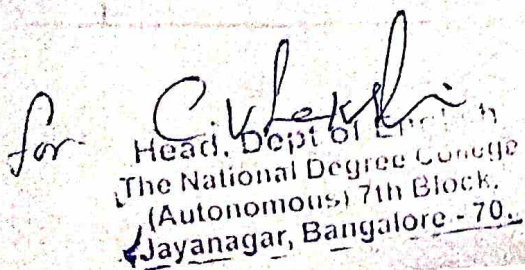 for
Head, Dept of English
The National Degree College
(Autonomous) 7th Block,
Jayanagar, Bangalore - 70.